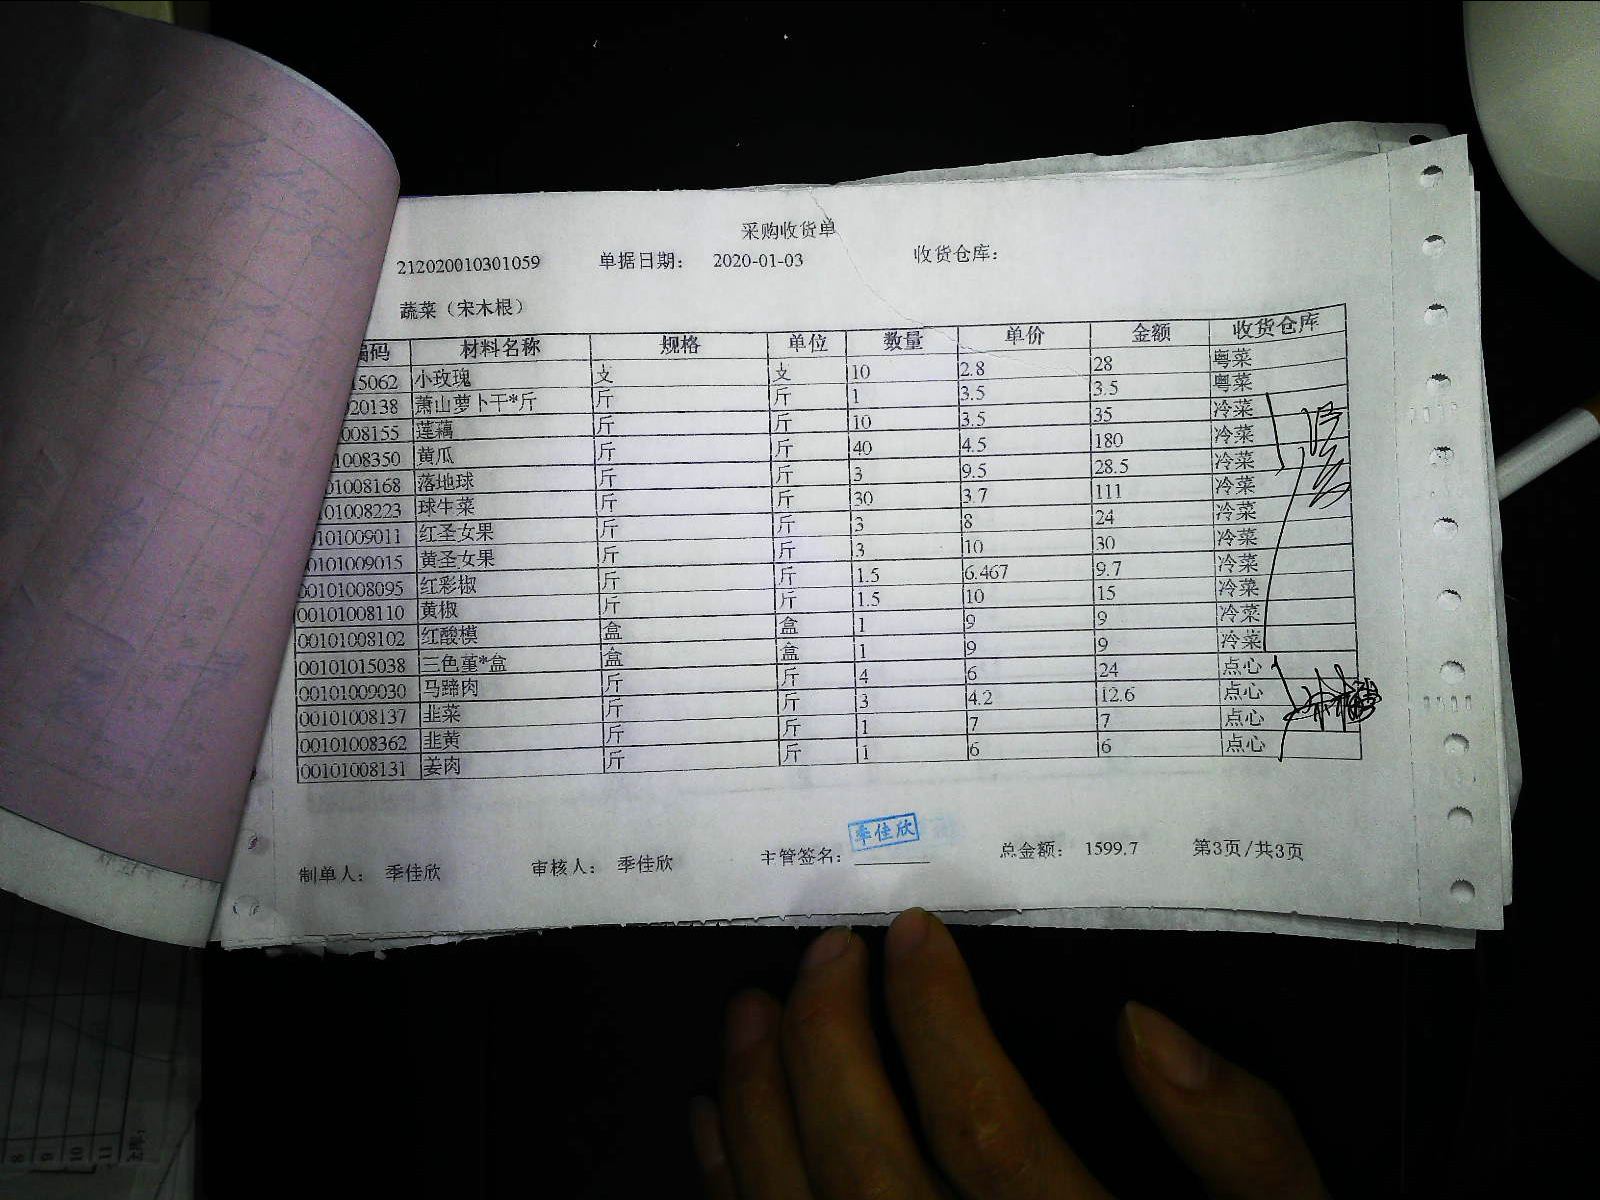 采购收货单
212020010301059 单据日期： 2020-01-03 收货仓库：
蔬菜（宋木根）
编码 材料名称 规格 单位 数量 单价 金额 收货仓库
15062 小玫瑰 支 支 10 2.8 28 粤菜
20138 萧山萝卜干*斤 斤 斤 1 3.5 3.5 粤菜
008155 莲藕 斤 斤 10 3.5 35 冷菜
1008350 黄瓜 斤 斤 40 4.5 180 冷菜
01008168 落地球 斤 斤 3 9.5 28.5 冷菜
101008223 球生菜 斤 斤 30 3.7 111 冷菜
0101009011 红圣女果 斤 斤 3 8 24 冷菜
00101009015 黄圣女果 斤 斤 3 10 30 冷菜
00101008095 红彩椒 斤 斤 1.5 6.467 9.7 冷菜
00101008110 黄椒 斤 斤 1.5 10 15 冷菜
00101008102 红酸模 盒 盒 1 9 9 冷菜
00101015038 三色堇*盒 盒 盒 1 9 9 冷菜
00101009030 马蹄肉 斤 斤 4 6 24 点心
00101008137 韭菜 斤 斤 3 4.2 12.6 点心
00101008362 韭黄 斤 斤 1 7 7 点心
00101008131 姜肉 斤 斤 1 6 6 点心
季佳欣
制单人： 季佳欣 审核人： 季佳欣 主管签名： 总金额： 1599.7 第3页/共3页
8
9
10
11